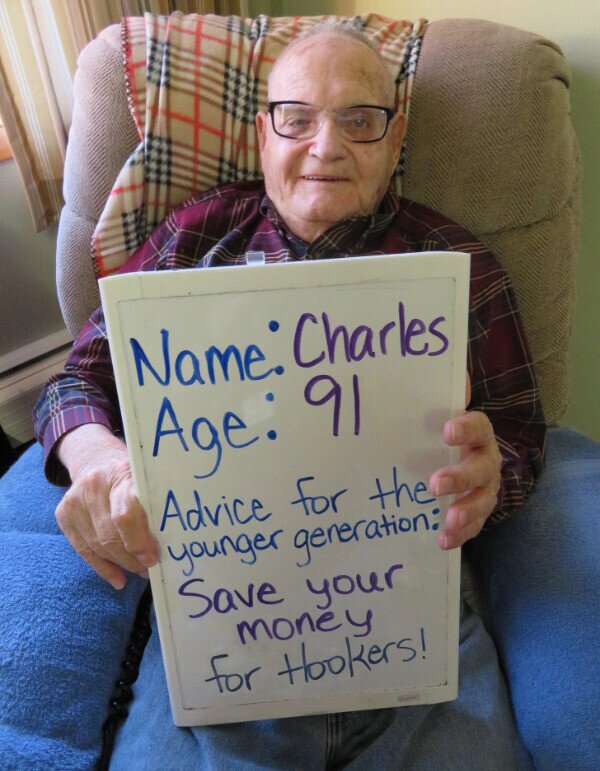 Name: Charles
Age: 91
Advice for the
younger generation:
Save your
money
for Hookers!